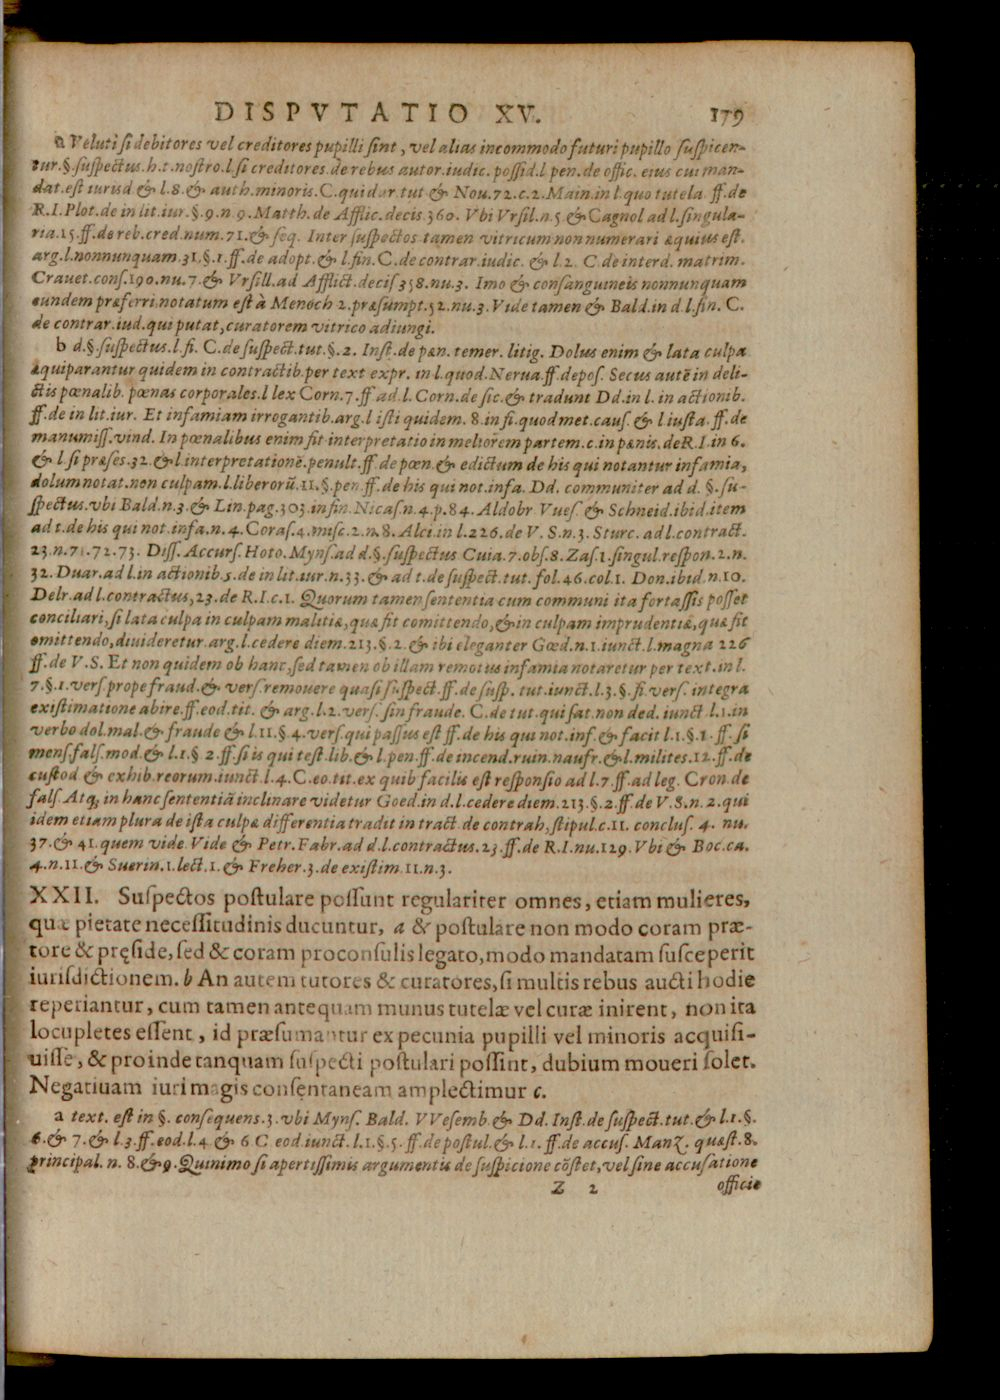 DISPVTATIO XV. 179
a Veluti si debitores vel creditores pupilli sint, vel alias incommodo futuri pupillo suspicen-
tur.§.suspectus.h.t.nostro.l.si creditores.de rebus autor.iudic. possid.l pen.de offic. eius cui man-
dat.est iurisd & l.8.& auth.minoris.C.qui dar.tut & Nou.72.c.2.Main.in l.quo tutela. ff.de
R.I.Plot.de in lit.iur.§.9.n 9.Matth.de Afflic.decis 360. Vbi Vrsil.n.5 & Cagnol ad l.singula-
ria.15.ff.de reb.cred.num.71.& seq. Inter suspectos tamen vitricum non numerari æquius est.
arg.l.nonnunquam.31.§.1.ff.de adopt.& l.fin.C.de contrar.iudic. & l.2. C.de interd. matrim.
Crauet.cons.190.nu.7.& Vrsill.ad Afflict.decis 358.nu.3. Imo & consanguineis nonnunquam
eundem præferri notatum est à Menoch 2.præsumpt.52.nu.3.Vide tamen & Bald.in d.l.fin. C.
de contrar.iud.qui putat,curatorem vitrico adiungi.
b d.§.suspectus.l.fi. C.de suspect.tut.§.2. Inst.de pæn. temer. litig. Dolus enim & lata culpa
æquiparantur quidem in contractib.per text expr. in l.quod.Nerua.ff.depos. Secus autē in deli-
ctis pœnalib. pœnas corporales.l lex Corn.7.ff.ad.l.Corn.de sic.& tradunt Dd.in l. in actionib.
ff.de in lit.iur. Et infamiam irrogantib.arg.l isti quidem. 8.in fi.quod met.caus.& l iusta.ff.de
manumiss.vind. In pœnalibus enim fit interpretatio in meliorem partem.c.in pænis.de R.I.in 6.
& l.si præses.32.& l.interpretationē.penult.ff.de pœn.& edictum de his qui notantur infamia,
dolum notat.non culpam.l.liberorū.11.§.pen.ff.de his qui not.infa. Dd. communiter ad d. §.su-
spectus.vbi Bald.n.3.& Lin.pag.303.in fin.Nicas.n.4.p.84. Aldobr Vues. & Schneid.ibid.item
ad t.de his qui not.infa.n. 4. Coras.4.misc.2.n.8. Alci.in l.226.de V. S.n.3. Sturc. ad l.contract.
23.n.71.72.73. Diss. Accurs. Hoto. Myns.ad d.§.suspectus Cuia.7.obs.8. Zas.1.singul.respon.2.n.
32. Duar.ad l.in actionib.5.de in lit.iur.n.33.& ad t.de suspect.tut. fol.46.col.1. Don.ibid.n.10.
Delr.ad l.contractus,23.de R.I.c.1. Quorum tamen sententia cum communi ita fortassis posset
conciliari,si lata culpa in culpam malitiæ,quæ fit comittendo,& in culpam imprudentiæ,quæ fit
omittendo,diuideretur.arg.l.cedere diem.213.§.2.& ibi eleganter Gœd.n.1.iunct.l.magna 226
ff.de V.S. Et non quidem ob hanc,sed tamen ob illam remotus infamia notaretur per text.in l.
7.§.1.vers.prope fraud.& vers.remouere quasi suspect.ff.de susp. tut.iunct.l.3.§.fi.vers. integra
existimatione abire.ff.eod.tit. & arg.l.2.vers. sin fraude. C.de tut.qui sat.non ded. iunct l.1.in
verbo dol.mal.& fraude & l.11.§.4.vers.qui passus est ff.de his qui not.inf.& facit l.1.§.1.ff.si
mens.fals.mod.& l.1.§ 2.ff.si is qui test.lib.& l.pen.ff.de incend.ruin.naufr.& l.milites.12.ff.de
custod & exhib.reorum.iunct.l.4.C.eo.tit.ex quib facilis est responsio ad l.7.ff.ad leg. Cron.de
fals. Atq; in hanc sententiā inclinare videtur Goed.in d.l.cedere diem.213.§.2.ff.de V.S.n.2.qui
idem etiam plura de ista culpæ differentia tradit in tract.de contrah,stipul.c.11. conclus. 4. nu.
37.& 41.quem vide. Vide & Petr.Fabr.ad d.l.contractus.23.ff.de R.I.nu.129.Vbi & Boc.ca.
4.n.11.& Suerin.1.lect.1.& Freher.3.de existim.11.n.3.
XXII. Suspectos postulare possunt regulariter omnes, etiam mulieres,
quæ pietate necessitudinis ducuntur, a & postulare non modo coram præ-
tore & pręside, sed & coram proconsulis legato, modo mandatam susceperit
iurisdictionem. b An autem tutores & curatores, si multis rebus aucti hodie
reperiantur, cum tamen antequam munus tutelæ vel curæ inirent, non ita
locupletes essent, id præsumantur ex pecunia pupilli vel minoris acquisi-
uisse, & proinde tanquam suspecti postulari possint, dubium moueri solet.
Negatiuam iuri magis consentaneam amplectimur c.
a text. est in §. consequens.3.vbi Myns. Bald. VVesemb.& Dd. Inst.de suspect.tut.& l.1.§.
6.& 7.& l.3.ff.eod.l.4 & 6 C eod.iunct.l.1.§.5.ff.de postul.& l.1. ff.de accus. Manz. quæst.8.
principal. n. 8.& 9. Quinimo si apertissimis argumentis de suspicione cōstet,vel sine accusatione
Z 2 officie